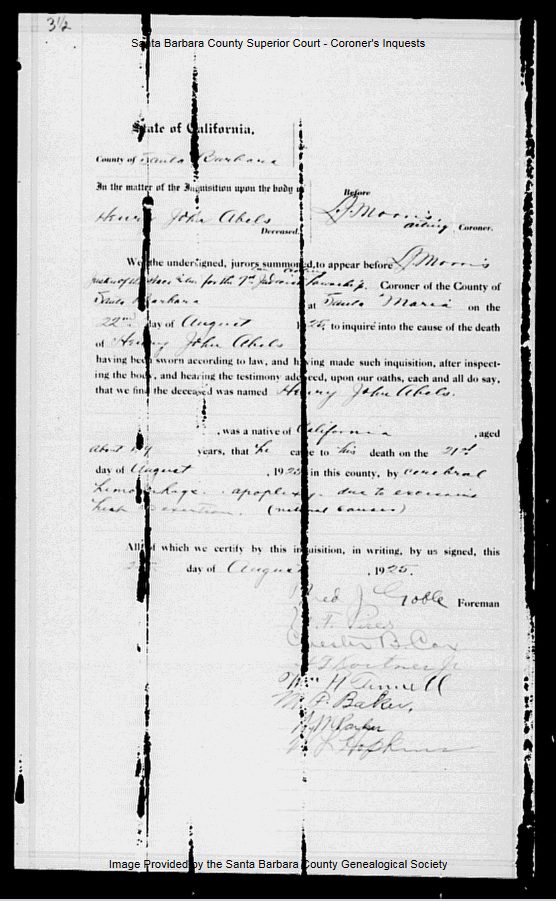 3½
Santa Barbara County Superior Court - Coroner's Inquests
State of California,
County of Santa Barbara
In the matter of the Inquisition upon the body of
Before
Henry John Abels
L. J. Morris,
Deceased.
acting Coroner.
We, the undersigned, jurors summoned to appear before L. J. Morris
Justice of the Peace for the 7th Judicial Township. Coroner of the County of
Santa Barbara at Santa Maria on the
22nd day of August 1925, to inquire into the cause of the death
of Henry John Abels
having been sworn according to law, and having made such inquisition, after inspect-
ing the body, and hearing the testimony adduced, upon our oaths, each and all do say,
that we find the deceased was named Henry John Abels.
, was a native of California , aged
about years, that he came to his death on the 21st
day of August , 1925 in this county, by cerebral
hemorrhage. apoplexy. due to excessive
heat exertion. (natural causes)
All of which we certify by this inquisition, in writing, by us signed, this
day of August , 1925.
Fred J Goble Foreman
Chester B. Cox
Wm H Tunnell
M. P. Baker,
H M Parker
L Hopkins
Image Provided by the Santa Barbara County Genealogical Society